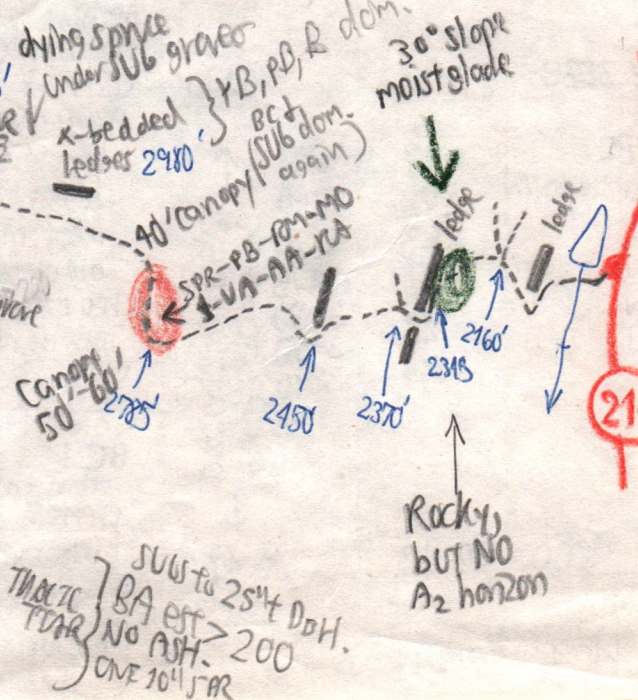 dying spruce
under SUB groves
x-bedded
ledges 2980'
YB, PB, B dom.
BC &
(SUB dom.
again)
30° slope
moist glade
40' canopy
SPR-PB-RM-MO
-VA-AA-
ledge
ledge
Canopy
50'-60'
2785'
2450'
2370'
2160'
21
Rocky,
but NO
A2 horizon
SUBS to 25"+ DBH.
BA est > 200
NO ASH.
ONE 10"